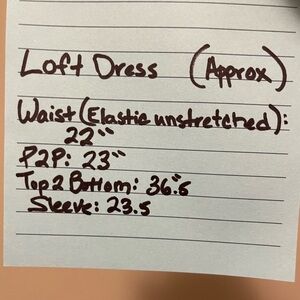 Loft Dress (Approx)
Waist (Elastic unstretched):
22"
P2P: 23"
Top 2 Bottom: 36".5
Sleeve: 23.5